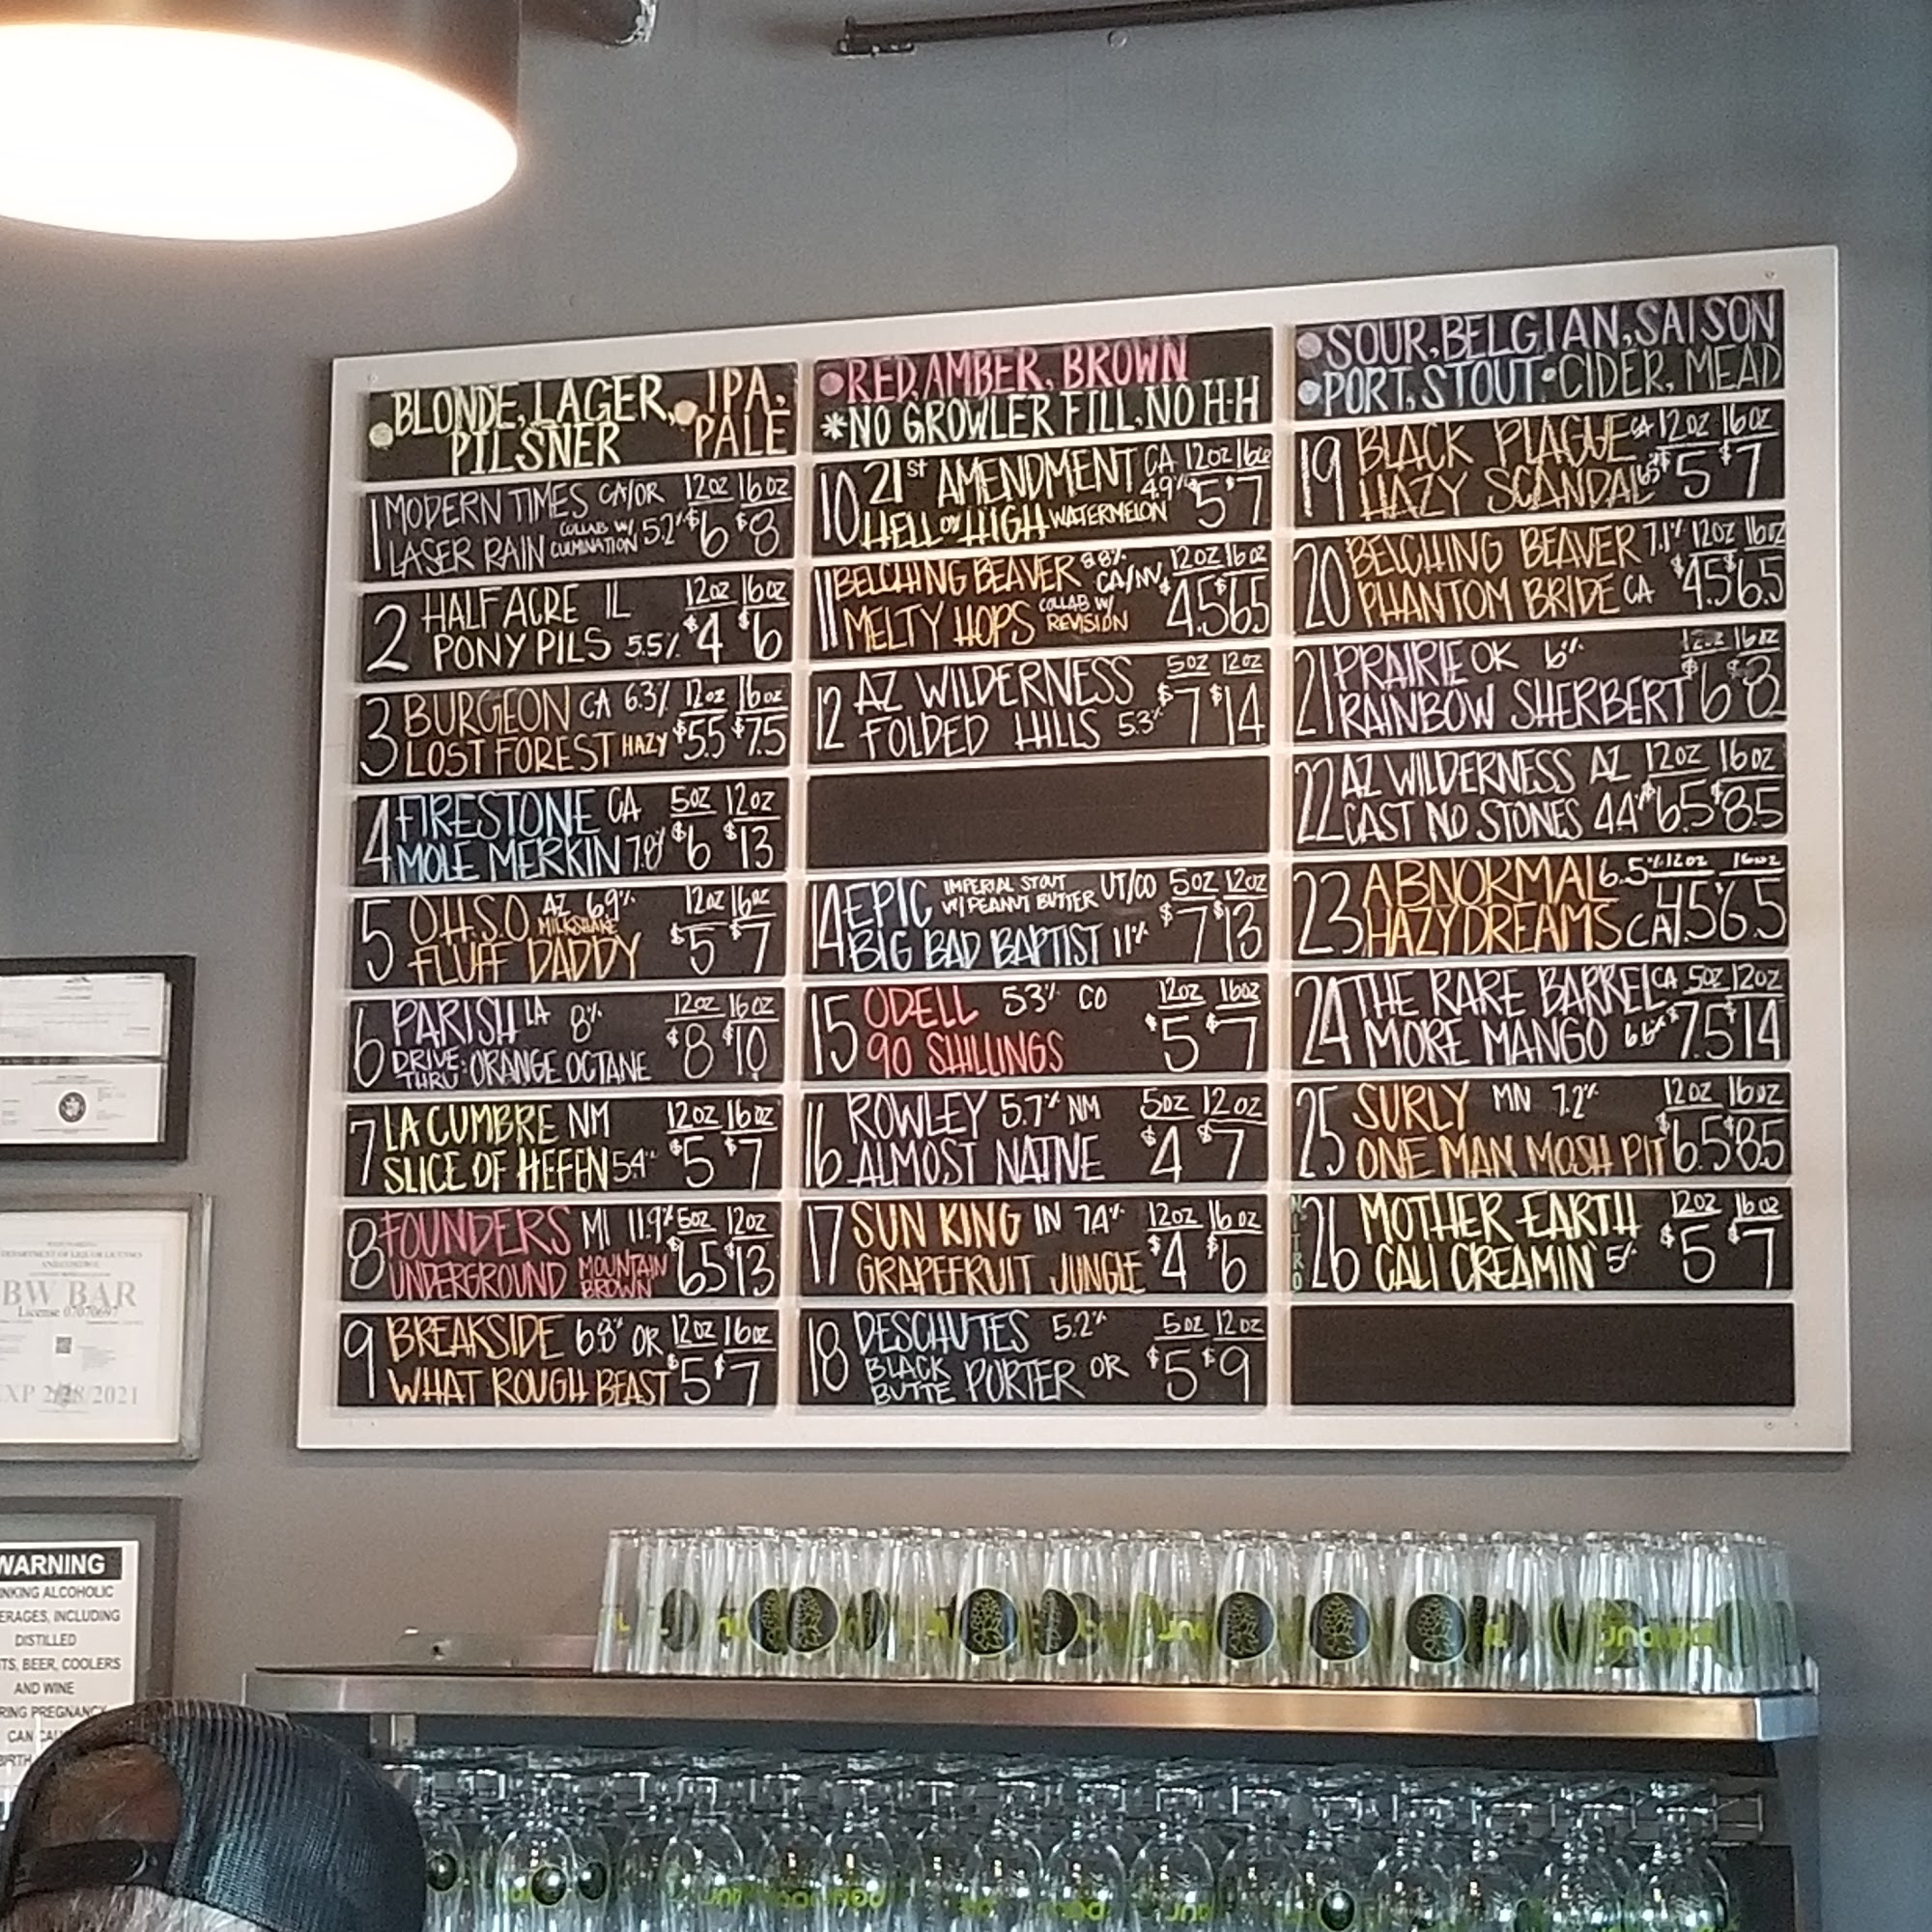 BLONDE, LAGER, PILSNER
IPA, PALE
RED, AMBER, BROWN
*NO GROWLER FILL, NO H-H
SOUR, BELGIAN, SAISON
PORT, STOUT • CIDER, MEAD
1 MODERN TIMES CA/OR 12OZ 16OZ
LASER RAIN COLLAB W/ CULMINATION 5.2% $6 $8
2 HALF ACRE IL 12OZ 16OZ
PONY PILS 5.5% $4 $6
3 BURGEON CA 6.3% 12OZ 16OZ
LOST FOREST HAZY $5.5 $7.5
4 FIRESTONE CA 5OZ 12OZ
MOLE MERKIN $6 $13
5 O.H.S.O AZ 6.9% 12OZ 16OZ
MILKSHAKE
FLUFF DADDY $5 $7
6 PARISH LA 8% 12OZ 16OZ
DRIVE-THRU: ORANGE OCTANE $8 $10
7 LA CUMBRE NM 12OZ 16OZ
SLICE OF HEFEN 5.4% $5 $7
8 FOUNDERS MI 11.9% 5OZ 12OZ
UNDERGROUND MOUNTAIN BROWN $6.5 $13
9 BREAKSIDE 6.8% OR 12OZ 16OZ
WHAT ROUGH BEAST $5 $7
10 21st AMENDMENT CA 12OZ 16OZ
HELL OR HIGH WATERMELON 4.9% $5 $7
11 BELCHING BEAVER 8.8% CA/NV 12OZ 16OZ
MELTY HOPS COLLAB W/ REVISION $4.5 $6.5
12 AZ WILDERNESS 5OZ 12OZ
FOLDED HILLS 5.3% $7 $14
14 EPIC IMPERIAL STOUT W/ PEANUT BUTTER UT/CO 5OZ 12OZ
BIG BAD BAPTIST 11% $7 $13
15 ODELL 5.3% CO 12OZ 16OZ
90 SHILLINGS $5 $7
16 ROWLEY 5.7% NM 5OZ 12OZ
ALMOST NATIVE $4 $7
17 SUN KING IN 7.4% 12OZ 16OZ
GRAPEFRUIT JUNGLE $4 $6
18 DESCHUTES 5.2% 5OZ 12OZ
BLACK BUTTE PORTER OR $5 $9
19 BLACK PLAGUE CA 12OZ 16OZ
HAZY SCANDAL $5 $7
20 BELCHING BEAVER 7.1% 12OZ 16OZ
PHANTOM BRIDE CA $4.5 $6.5
21 PRAIRIE OK 6% 12OZ 16OZ
RAINBOW SHERBERT $6 $8
22 AZ WILDERNESS AZ 12OZ 16OZ
CAST NO STONES 4.4% $6.5 $8.5
23 ABNORMAL 6.5% 12OZ 16OZ
HAZY DREAMS CA $4.5 $6.5
24 THE RARE BARREL CA 5OZ 12OZ
MORE MANGO 6.6% $7.5 $14
25 SURLY MN 7.2% 12OZ 16OZ
ONE MAN MOSH PIT $6.5 $8.5
NITRO
26 MOTHER EARTH 12OZ 16OZ
CALI CREAMIN' 5% $5 $7
DEPARTMENT OF LIQUOR LICENSES
AND CONTROL
BW BAR
License 07070697
EXP 2/28/2021
WARNING
INKING ALCOHOLIC
ERAGES, INCLUDING
DISTILLED
TS, BEER, COOLERS
AND WINE
RING PREGNANCY
CAN